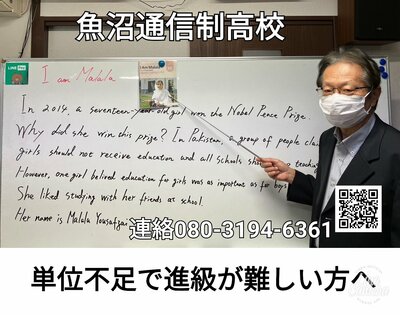 魚沼通信制高校
LINE Pay
I am Malala
I Am Malala
In 2014, a seventeen-year-old girl won the Nobel Peace Prize.
Why did she win this prize? In Pakistan, a group of people
girls should not receive education and all schools teaching
However, one girl belived education for girls was as important as for boys
She liked studying with her friends at school.
Her name is Malala Yousafzai
連絡080-3194-6361
単位不足で進級が難しい方へ